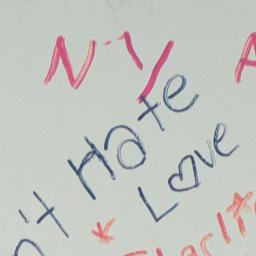 N.Y
n't Hate
Love